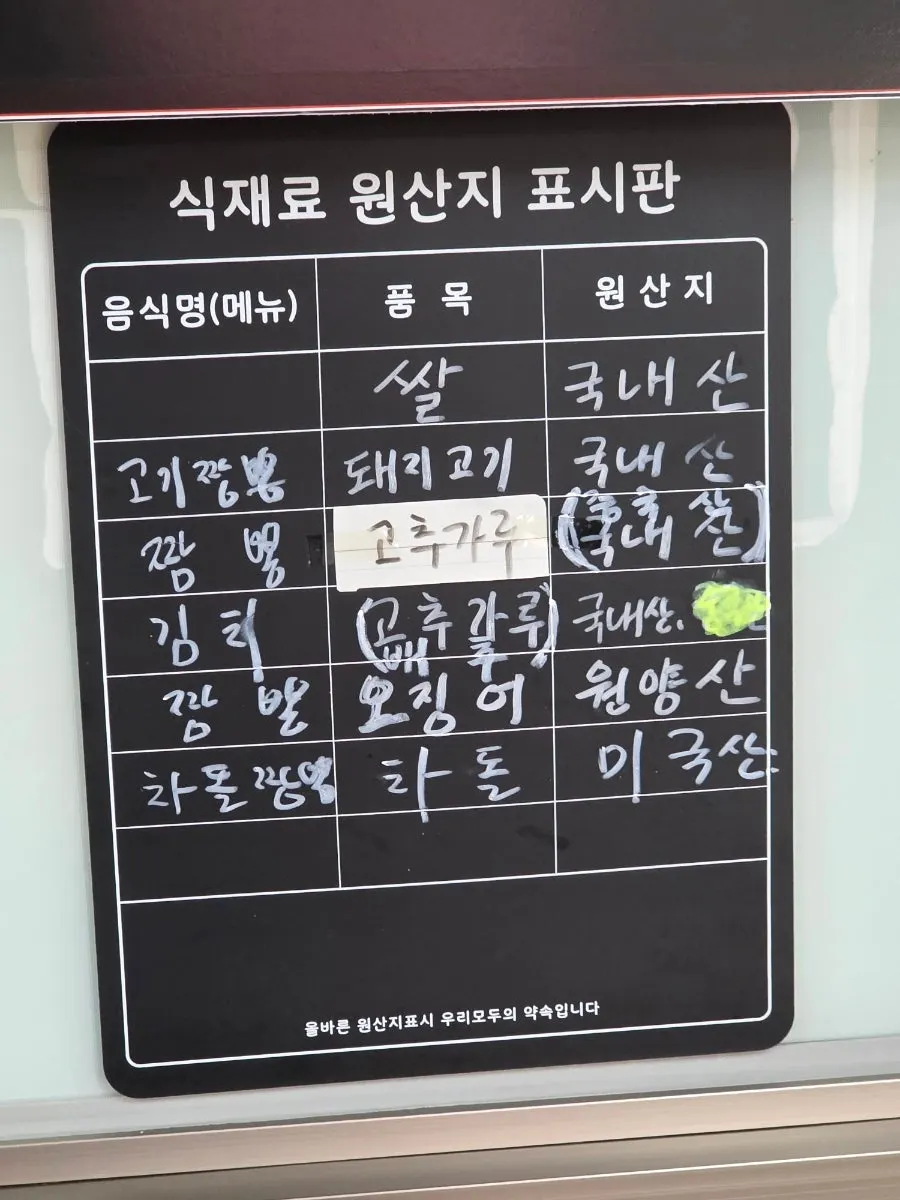 식재료 원산지 표시판
음식명(메뉴) 품 목 원 산 지
쌀 국내 산
고기짬뽕 돼지고기 국내 산
짬 뽕 고추가루 국내 산
김 치 (고추 가루) 국내산.
배 추
짬 뽕 오징어 원양산
차돌짬뽕 차 돌 미국산
올바른 원산지표시 우리모두의 약속입니다